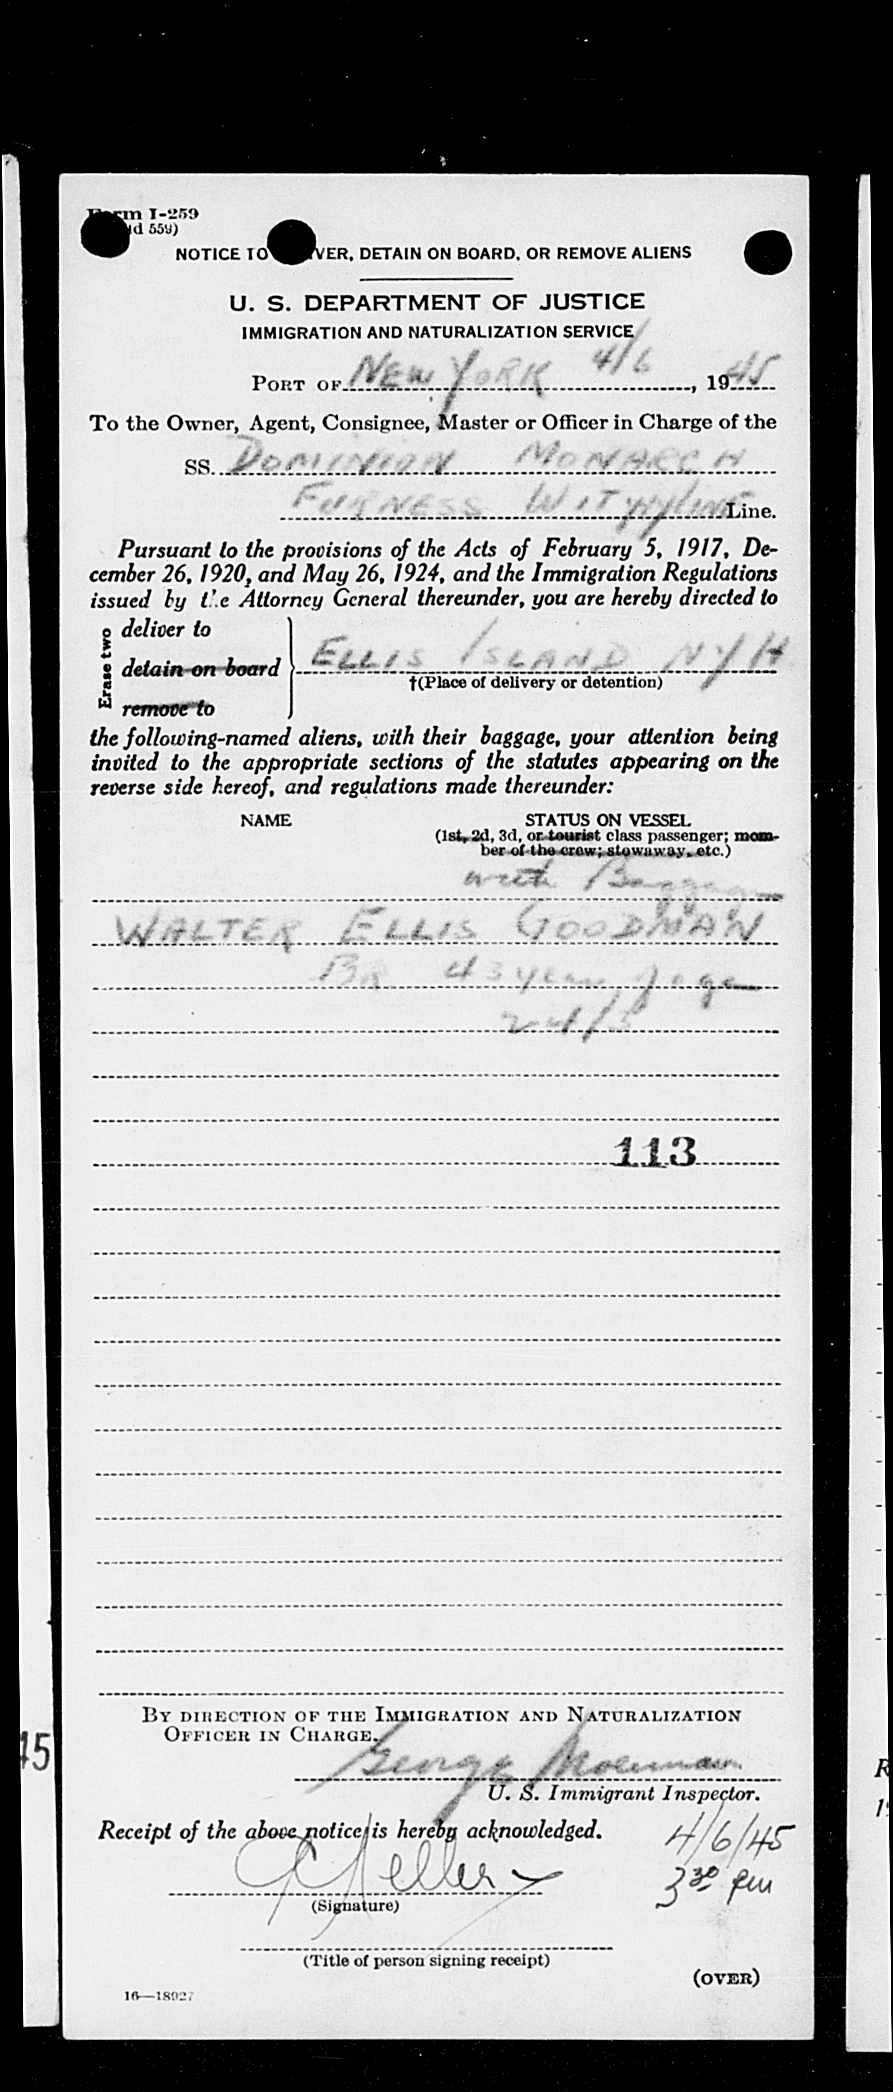 Form I-259
NOTICE TO VER, DETAIN ON BOARD, OR REMOVE ALIENS
U. S. DEPARTMENT OF JUSTICE
IMMIGRATION AND NATURALIZATION SERVICE
PORT OF NEW YORK 4/6, 1945
To the Owner, Agent, Consignee, Master or Officer in Charge of the
SS. DOMINION MONARCH
FURNESS WITHY LINE Line.
Pursuant to the provisions of the Acts of February 5, 1917, De-
cember 26, 1920, and May 26, 1924, and the Immigration Regulations
issued by the Attorney General thereunder, you are hereby directed to
Erase two
deliver to
detain on board ELLIS ISLAND NYH
†(Place of delivery or detention)
remove to
the following-named aliens, with their baggage, your attention being
invited to the appropriate sections of the statutes appearing on the
reverse side hereof, and regulations made thereunder:
NAME STATUS ON VESSEL
(1st, 2d, 3d, or tourist class passenger; mem-
ber of the crew; stowaway, etc.)
with Baggage
WALTER ELLIS GOODMAN
BR 43 years of age
24/5
113
BY DIRECTION OF THE IMMIGRATION AND NATURALIZATION
OFFICER IN CHARGE.
George
U. S. Immigrant Inspector.
Receipt of the above notice is hereby acknowledged. 4/6/45
3 30 pm
(Signature)
(Title of person signing receipt)
(OVER)
16—18927